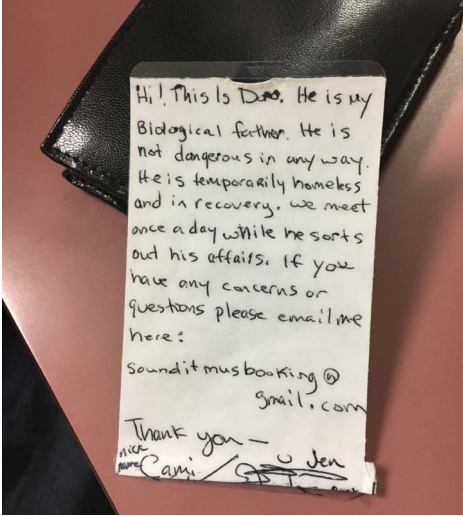 Hi! This Is He is My
Biological father. He is
not dangerous in any way.
He is temporarily homeless
and in recovery. we meet
once a day while he sorts
out his affairs. If you
have any concerns or
questions please email me
here:
sounditmusbooking@
gmail.com
Thank you —
nick
name Cami / Jen